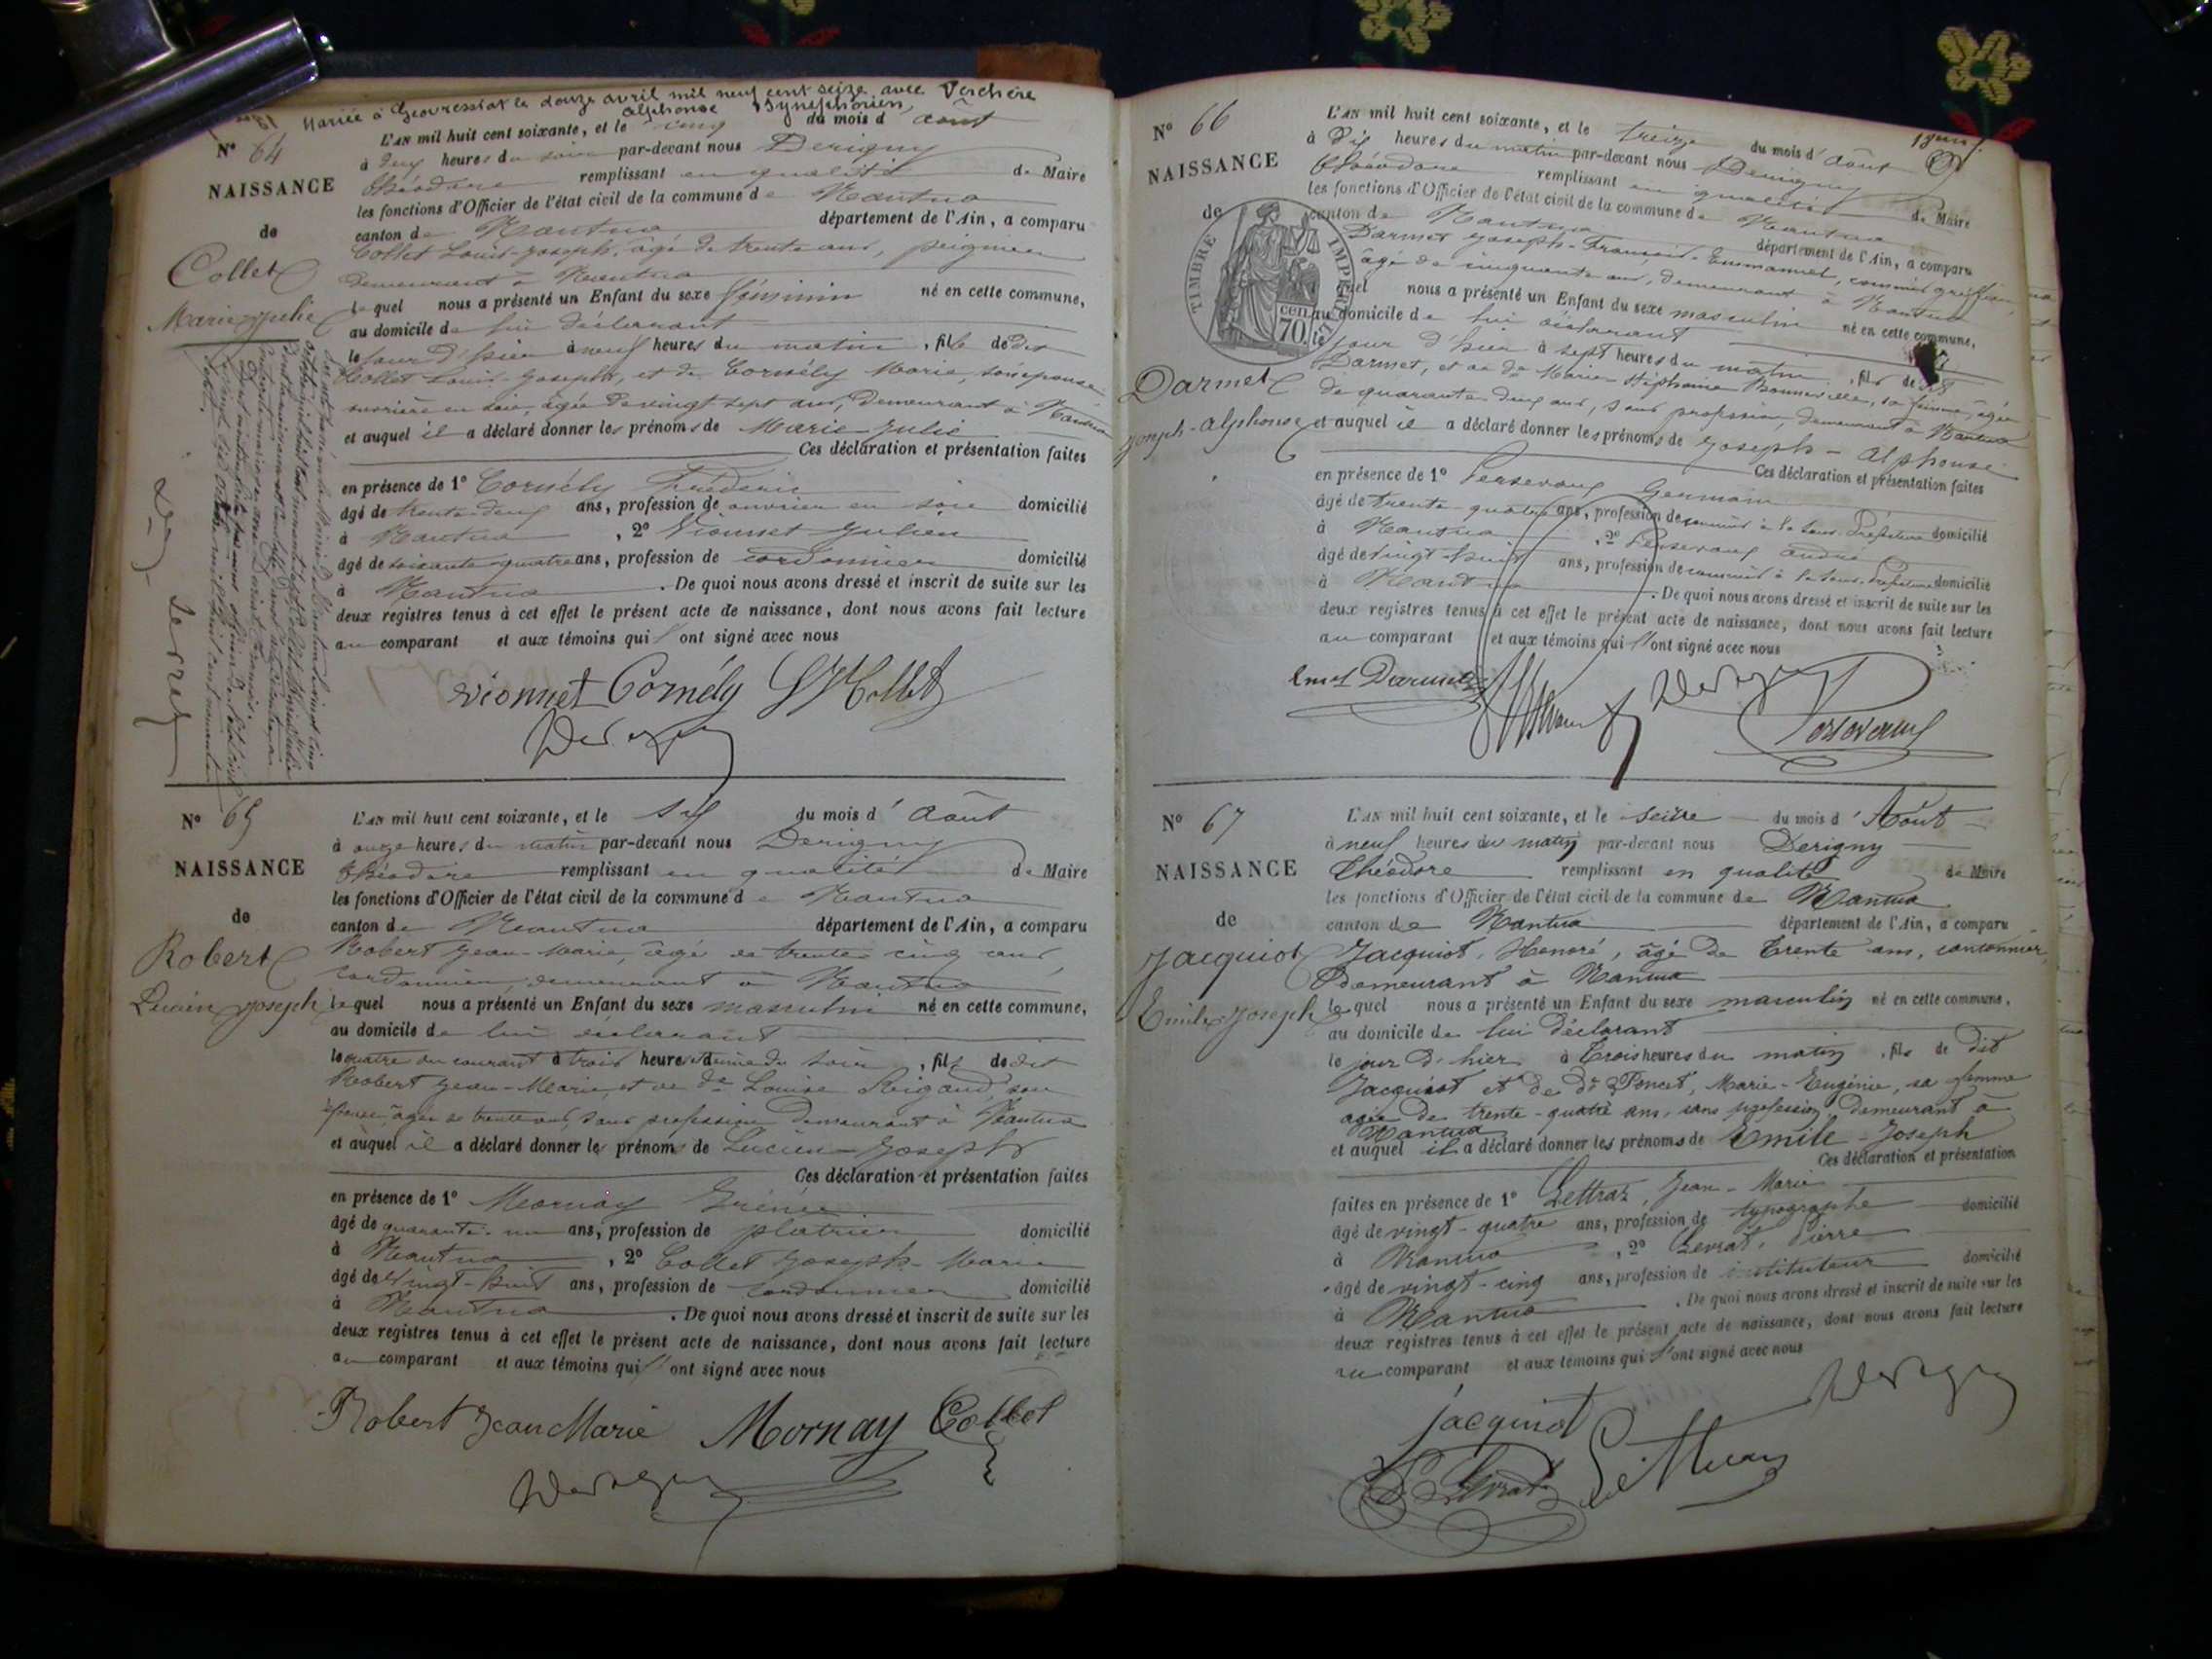 Mariée à Géovressiat le douze avril mil neuf cent seize avec Verchère
Alphonse Symphorien
N° 64
NAISSANCE
de
Collet
Marie Julie
L'AN mil huit cent soixante, et le cinq du mois d'août
à deux heures du soir par-devant nous Derigny
Théodore remplissant en qualité de Maire
les fonctions d'Officier de l'état civil de la commune de Nantua
canton de Nantua département de l'Ain, a comparu
Collet Louis-Joseph, âgé de trente ans, peignier
demeurant à Nantua
lequel nous a présenté un Enfant du sexe féminin né en cette commune,
au domicile de lui déclarant
le jour d'hier à neuf heures du matin, fille de dit
Collet Louis-Joseph, et de Cornély Marie, son épouse
ouvrière en soie, âgée de vingt sept ans, demeurant à Nantua
et auquel il a déclaré donner les prénoms de Marie-Julie
Ces déclaration et présentation faites
en présence de 1° Cornély Frédéric
âgé de trente-deux ans, profession de ouvrier en soie domicilié
à Nantua, 2° Vionnet Julien
âgé de soixante quatre ans, profession de cordonnier domicilié
à Nantua. De quoi nous avons dressé et inscrit de suite sur les
deux registres tenus à cet effet le présent acte de naissance, dont nous avons fait lecture
au comparant et aux témoins qui l'ont signé avec nous
Vionnet Cornély Collet
N° 65
NAISSANCE
de
Robert
Lucien Joseph
L'AN mil huit cent soixante, et le six du mois d'août
à onze heures du matin par-devant nous Derigny
Théodore remplissant en qualité de Maire
les fonctions d'Officier de l'état civil de la commune de Nantua
canton de Nantua département de l'Ain, a comparu
Robert Jean-Marie, âgé de trente cinq ans,
cordonnier, demeurant à Nantua
lequel nous a présenté un Enfant du sexe masculin né en cette commune,
au domicile de lui déclarant
le quatre du courant à trois heures et demie du soir, fils de dit
Robert Jean-Marie, et de de Louise Reigaud, son
épouse, âgée de trente ans, sans profession demeurant à Nantua
et auquel il a déclaré donner les prénoms de Lucien-Joseph
Ces déclaration et présentation faites
en présence de 1° Mornay
âgé de quarante-un ans, profession de platrier domicilié
à Nantua, 2° Collet Joseph-Marie
âgé de vingt-huit ans, profession de cordonnier domicilié
à Nantua. De quoi nous avons dressé et inscrit de suite sur les
deux registres tenus à cet effet le présent acte de naissance, dont nous avons fait lecture
au comparant et aux témoins qui l'ont signé avec nous
Robert Jean Marie Mornay Collet
N° 66
NAISSANCE
de
TIMBRE IMPERIAL
70 cen.
Darmet
Joseph-Alphonse
L'AN mil huit cent soixante, et le treize du mois d'août
à dix heures du matin par-devant nous Derigny
Théodore remplissant en qualité de Maire
les fonctions d'Officier de l'état civil de la commune de Nantua
canton de Nantua département de l'Ain, a comparu
Darmet Joseph-François-Emmanuel, commis greffier,
âgé de cinquante ans, demeurant à Nantua
lequel nous a présenté un Enfant du sexe masculin né en cette commune,
au domicile de lui déclarant
le jour d'hier à sept heures du matin, fils de dit
Darmet, et de de Marie Stéphanie Bonneville, sa femme, âgée
de quarante deux ans, sans profession, demeurant à Nantua
et auquel il a déclaré donner les prénoms de Joseph-Alphonse
Ces déclaration et présentation faites
en présence de 1° Germain
âgé de trente quatre ans, profession de commis à la Sous-Préfecture domicilié
à Nantua, 2° André
âgé de vingt-huit ans, profession de commis à la Sous-Préfecture domicilié
à Nantua. De quoi nous avons dressé et inscrit de suite sur les
deux registres tenus à cet effet le présent acte de naissance, dont nous avons fait lecture
au comparant et aux témoins qui l'ont signé avec nous
N° 67
NAISSANCE
de
Jacquiot
Emile Joseph
L'AN mil huit cent soixante, et le seize du mois d'Août
à neuf heures du matin par-devant nous Derigny
Théodore remplissant en qualité de Maire
les fonctions d'Officier de l'état civil de la commune de Nantua
canton de Nantua département de l'Ain, a comparu
Jacquiot, Honoré, âgé de trente ans, cantonnier,
demeurant à Nantua
lequel nous a présenté un Enfant du sexe masculin né en cette commune,
au domicile de lui déclarant
le jour d'hier à trois heures du matin, fils de dit
Jacquiot et de de Poncet, Marie-Eugénie, sa femme
agée de trente-quatre ans, sans profession, demeurant à
Nantua
et auquel il a déclaré donner les prénoms de Emile-Joseph
Ces déclaration et présentation
faites en présence de 1° Jean-Marie
âgé de vingt-quatre ans, profession de typographe domicilié
à Nantua, 2° Levrat, Pierre
âgé de vingt-cinq ans, profession de instituteur domicilié
à Nantua. De quoi nous avons dressé et inscrit de suite sur les
deux registres tenus à cet effet le présent acte de naissance, dont nous avons fait lecture
au comparant et aux témoins qui l'ont signé avec nous
Jacquiot
Levrat